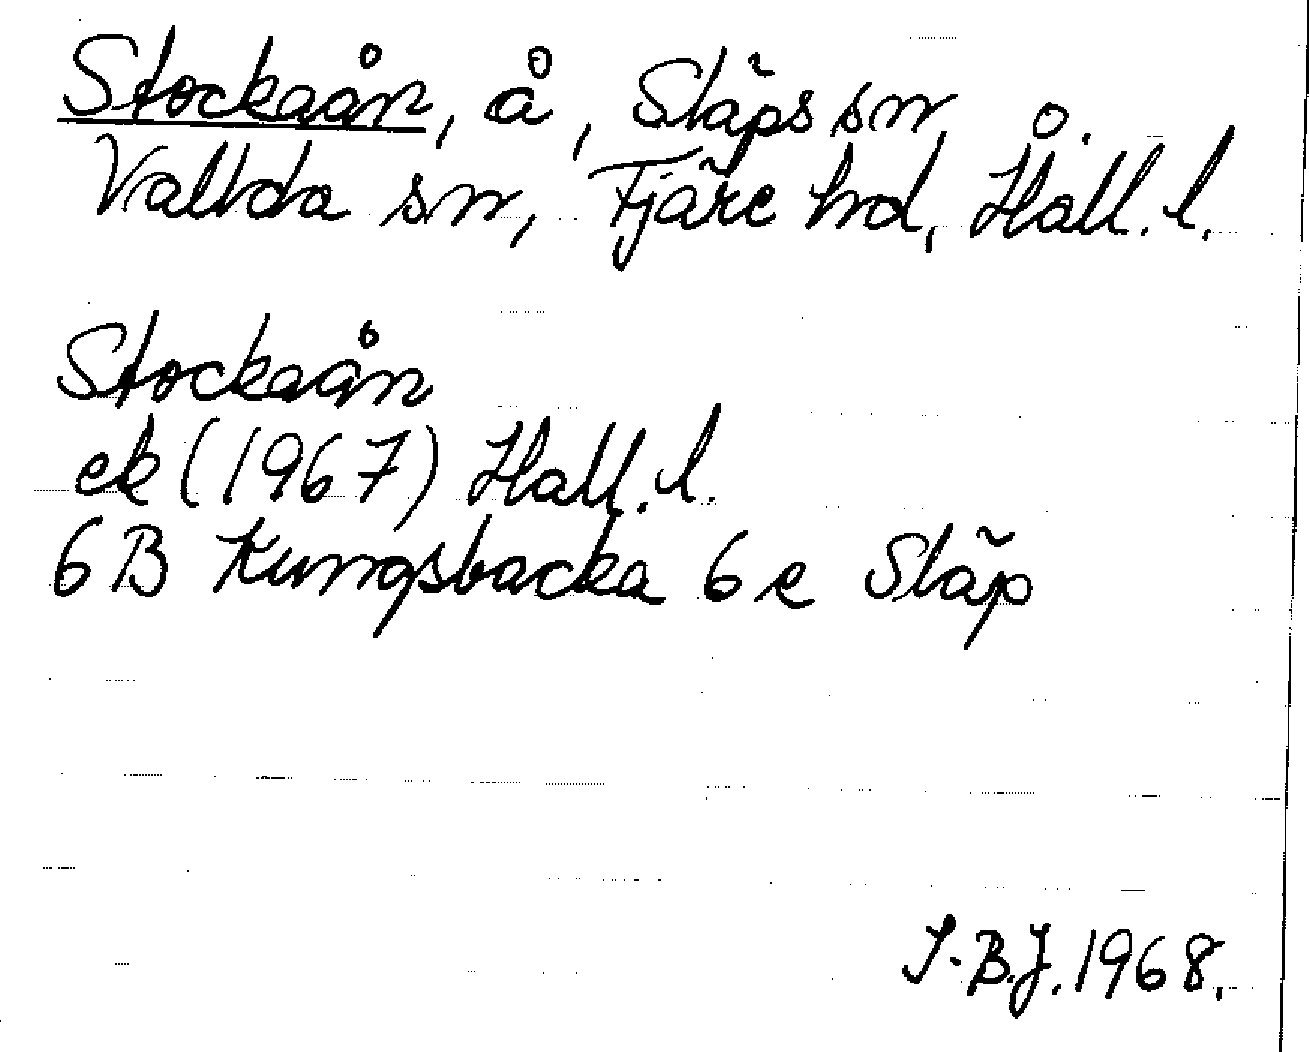 Stockaån, å, Släps sn o.
Vallda sn, Fjäre hd, Hall. l.
Stockaån
ek (1967) Hall. l.
6B Kungsbacka 6e Släp
I.B.J. 1968.